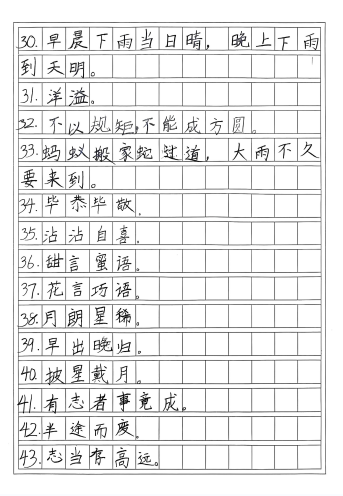 30.早晨下雨当日晴，晚上下雨
到天明。
31.洋溢。
32.不以规矩,不能成方圆。
33.蚂蚁搬家蛇过道，大雨不久
要来到。
34.毕恭毕敬.
35.沾沾自喜.
36.甜言蜜语。
37.花言巧语。
38.月朗星稀。
39.早出晚归。
40.披星戴月。
41.有志者事竟成。
42.半途而废。
43.志当存高远。